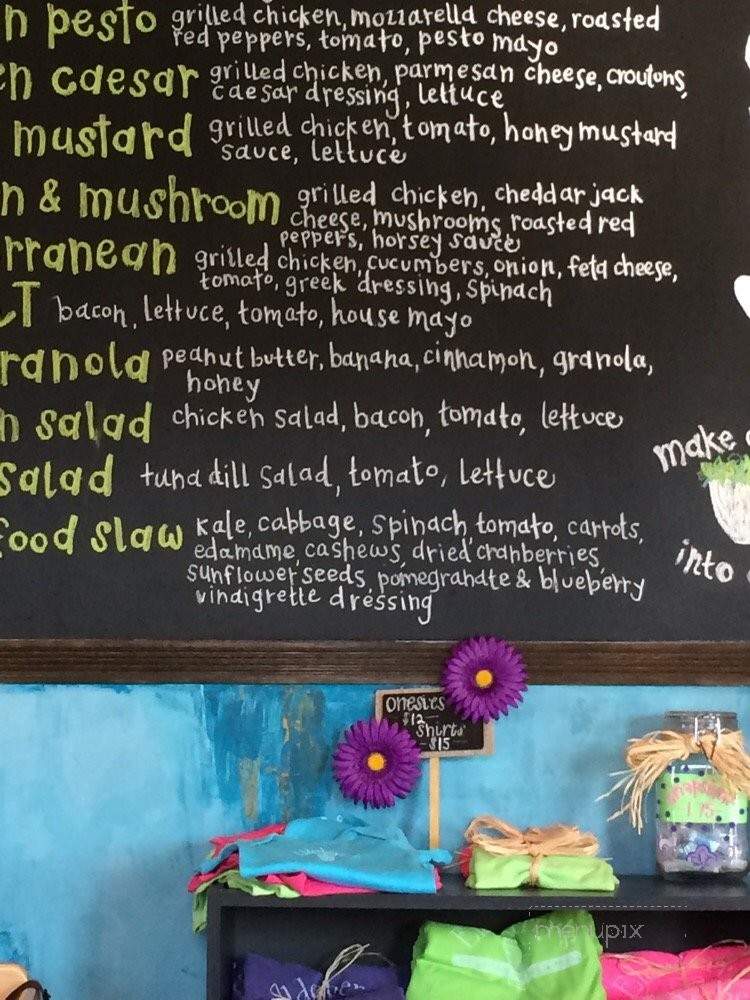 n pesto grilled chicken, mozzarella cheese, roasted
red peppers, tomato, pesto mayo
en caesar grilled chicken, parmesan cheese, croutons,
caesar dressing, lettuce
mustard grilled chicken, tomato, honey mustard
sauce, lettuce
n & mushroom grilled chicken, cheddar jack
cheese, mushrooms, roasted red
peppers, horsey sauce
rranean grilled chicken, cucumbers, onion, feta cheese,
tomato, greek dressing, spinach
LT bacon, lettuce, tomato, house mayo
ranola peanut butter, banana, cinnamon, granola,
honey
n salad chicken salad, bacon, tomato, lettuce
salad tuna dill salad, tomato, lettuce
food slaw kale, cabbage, spinach, tomato, carrots,
edamame, cashews, dried cranberries,
sunflower seeds, pomegranate & blueberry
vinaigrette dressing
make
into
onesies
$12
shirts
-$15-
1.75
menupix